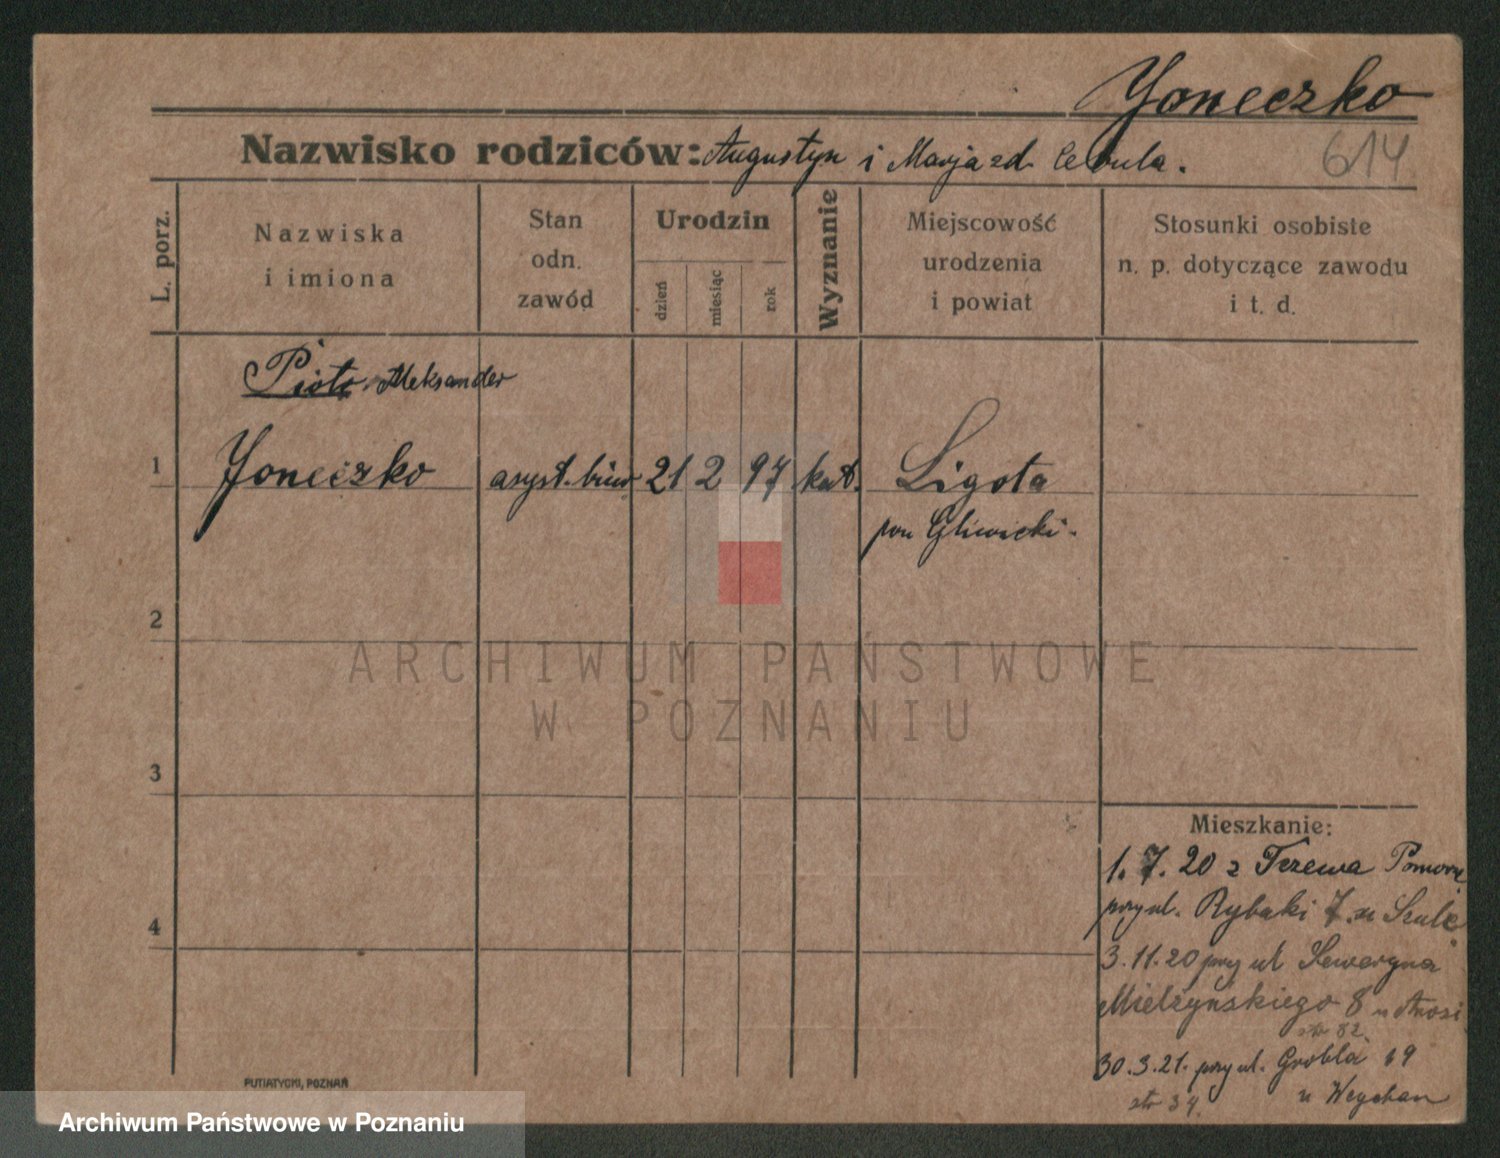 Yoneczko
Nazwisko rodziców: Augustyn i Marja zd. Cebula.
614
L. porz.
Nazwiska
i imiona
Stan
odn.
zawód
Urodzin
dzień
miesiąc
rok
Wyznanie
Miejscowość
urodzenia
i powiat
Stosunki osobiste
n. p. dotyczące zawodu
i t. d.
Piotr Aleksander
1 Yoneczko asyst. biur 21 2 97 kat. Ligota
pow Gliwicki.
2
ARCHIWUM PAŃSTWOWE
W POZNANIU
3
4
Mieszkanie:
1. 7. 20 z Tczewa Pomorz
przy ul. Rybaki 7. u Szulc
3. 11. 20 przy ul Seweryna
Mielżyńskiego 8 u
str 82.
30. 3. 21. przy ul. Grobla 19
u Weychan
str 34.
PUTIATYCKI, POZNAŃ
Archiwum Państwowe w Poznaniu